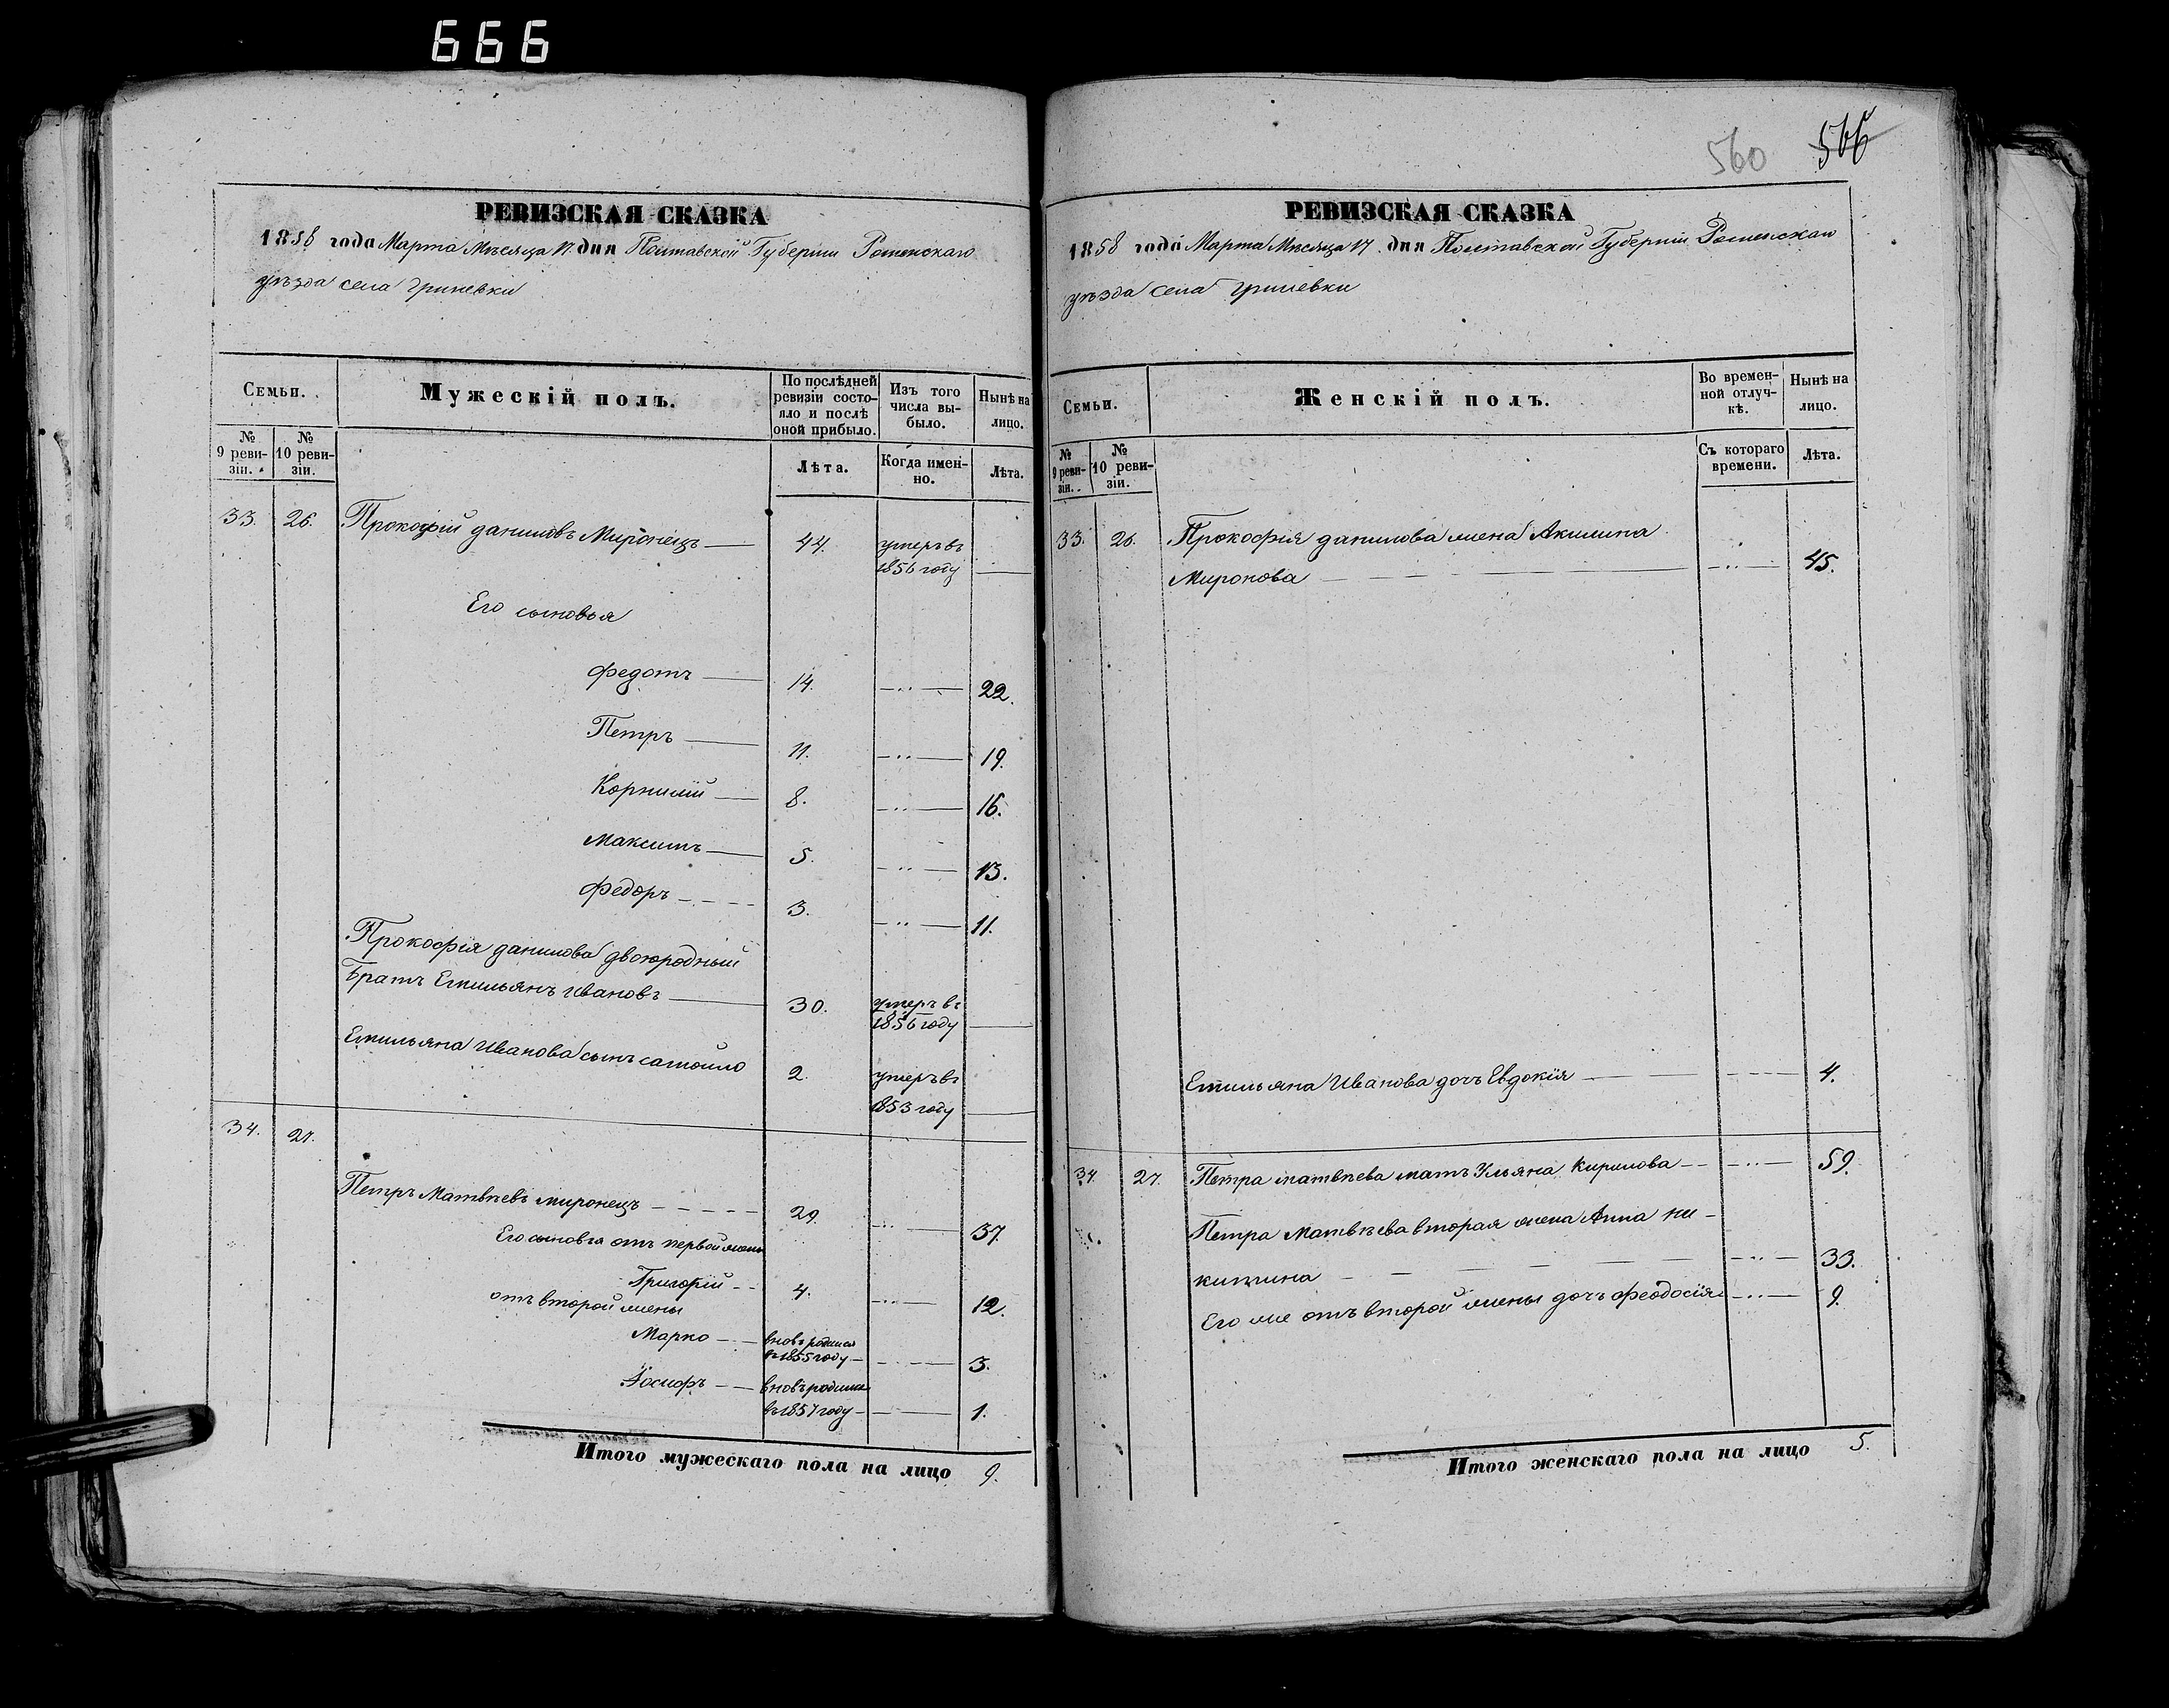 666
РЕВИЗСКАЯ СКАЗКА
1858 года Марта Мѣсяца 17 дня Полтавской Губерніи Роменскаго
уѣзда села Гриневки
Семьи.
Мужескій полъ.
По послѣдней ревизіи состояло и послѣ оной прибыло.
Изъ того числа выбыло.
Нынѣ на лицо.
№ 9 ревизіи.
№ 10 ревизіи.
Лѣта.
Когда именно.
Лѣта.
33. 26. Прокофій Даниловъ Миронецъ — 44. умеръ въ
1856 году —
Его сыновья
Федотъ — 14. —··— 22.
Петръ — 11. —··— 19.
Корнилій — 8. —··— 16.
Максимъ — 5. —··— 13.
Федоръ — 3. —··— 11.
Прокофія Данилова двоюродный
братъ Емильянъ Ивановъ — 30. умеръ въ
1856 году —
Емильяна Иванова сынъ Самойло 2. умеръ въ
1853 году —
34. 27.
Петръ Матвѣевъ Миронецъ — 29. —··— 37.
Его сыновья отъ первой жены
Григорій — 4. —··— 12.
отъ второй жены
Марко — вновь родился
въ 1855 году — 3.
Іосифъ — вновь родился
въ 1857 году — 1.
Итого мужескаго пола на лицо 9.
560 566
РЕВИЗСКАЯ СКАЗКА
1858 года Марта Мѣсяца 17 дня Полтавской Губерніи Роменскаго
уѣзда села Гриневки
Семьи.
Женскій полъ.
Во временной отлучкѣ.
Нынѣ на лицо.
№ 9 ревизіи.
№ 10 ревизіи.
Съ котораго времени.
Лѣта.
33. 26. Прокофія Данилова жена Акилина
Миронова — —··— 45.
Емильяна Иванова дочь Евдокія — 4.
34. 27. Петра Матвѣева мать Ульяна Кирилова — —··— 59.
Петра Матвѣева вторая жена Анна Ни-
китина — —··— 33.
Его же отъ второй жены дочь Феодосія —··— 9.
Итого женскаго пола на лицо 5.